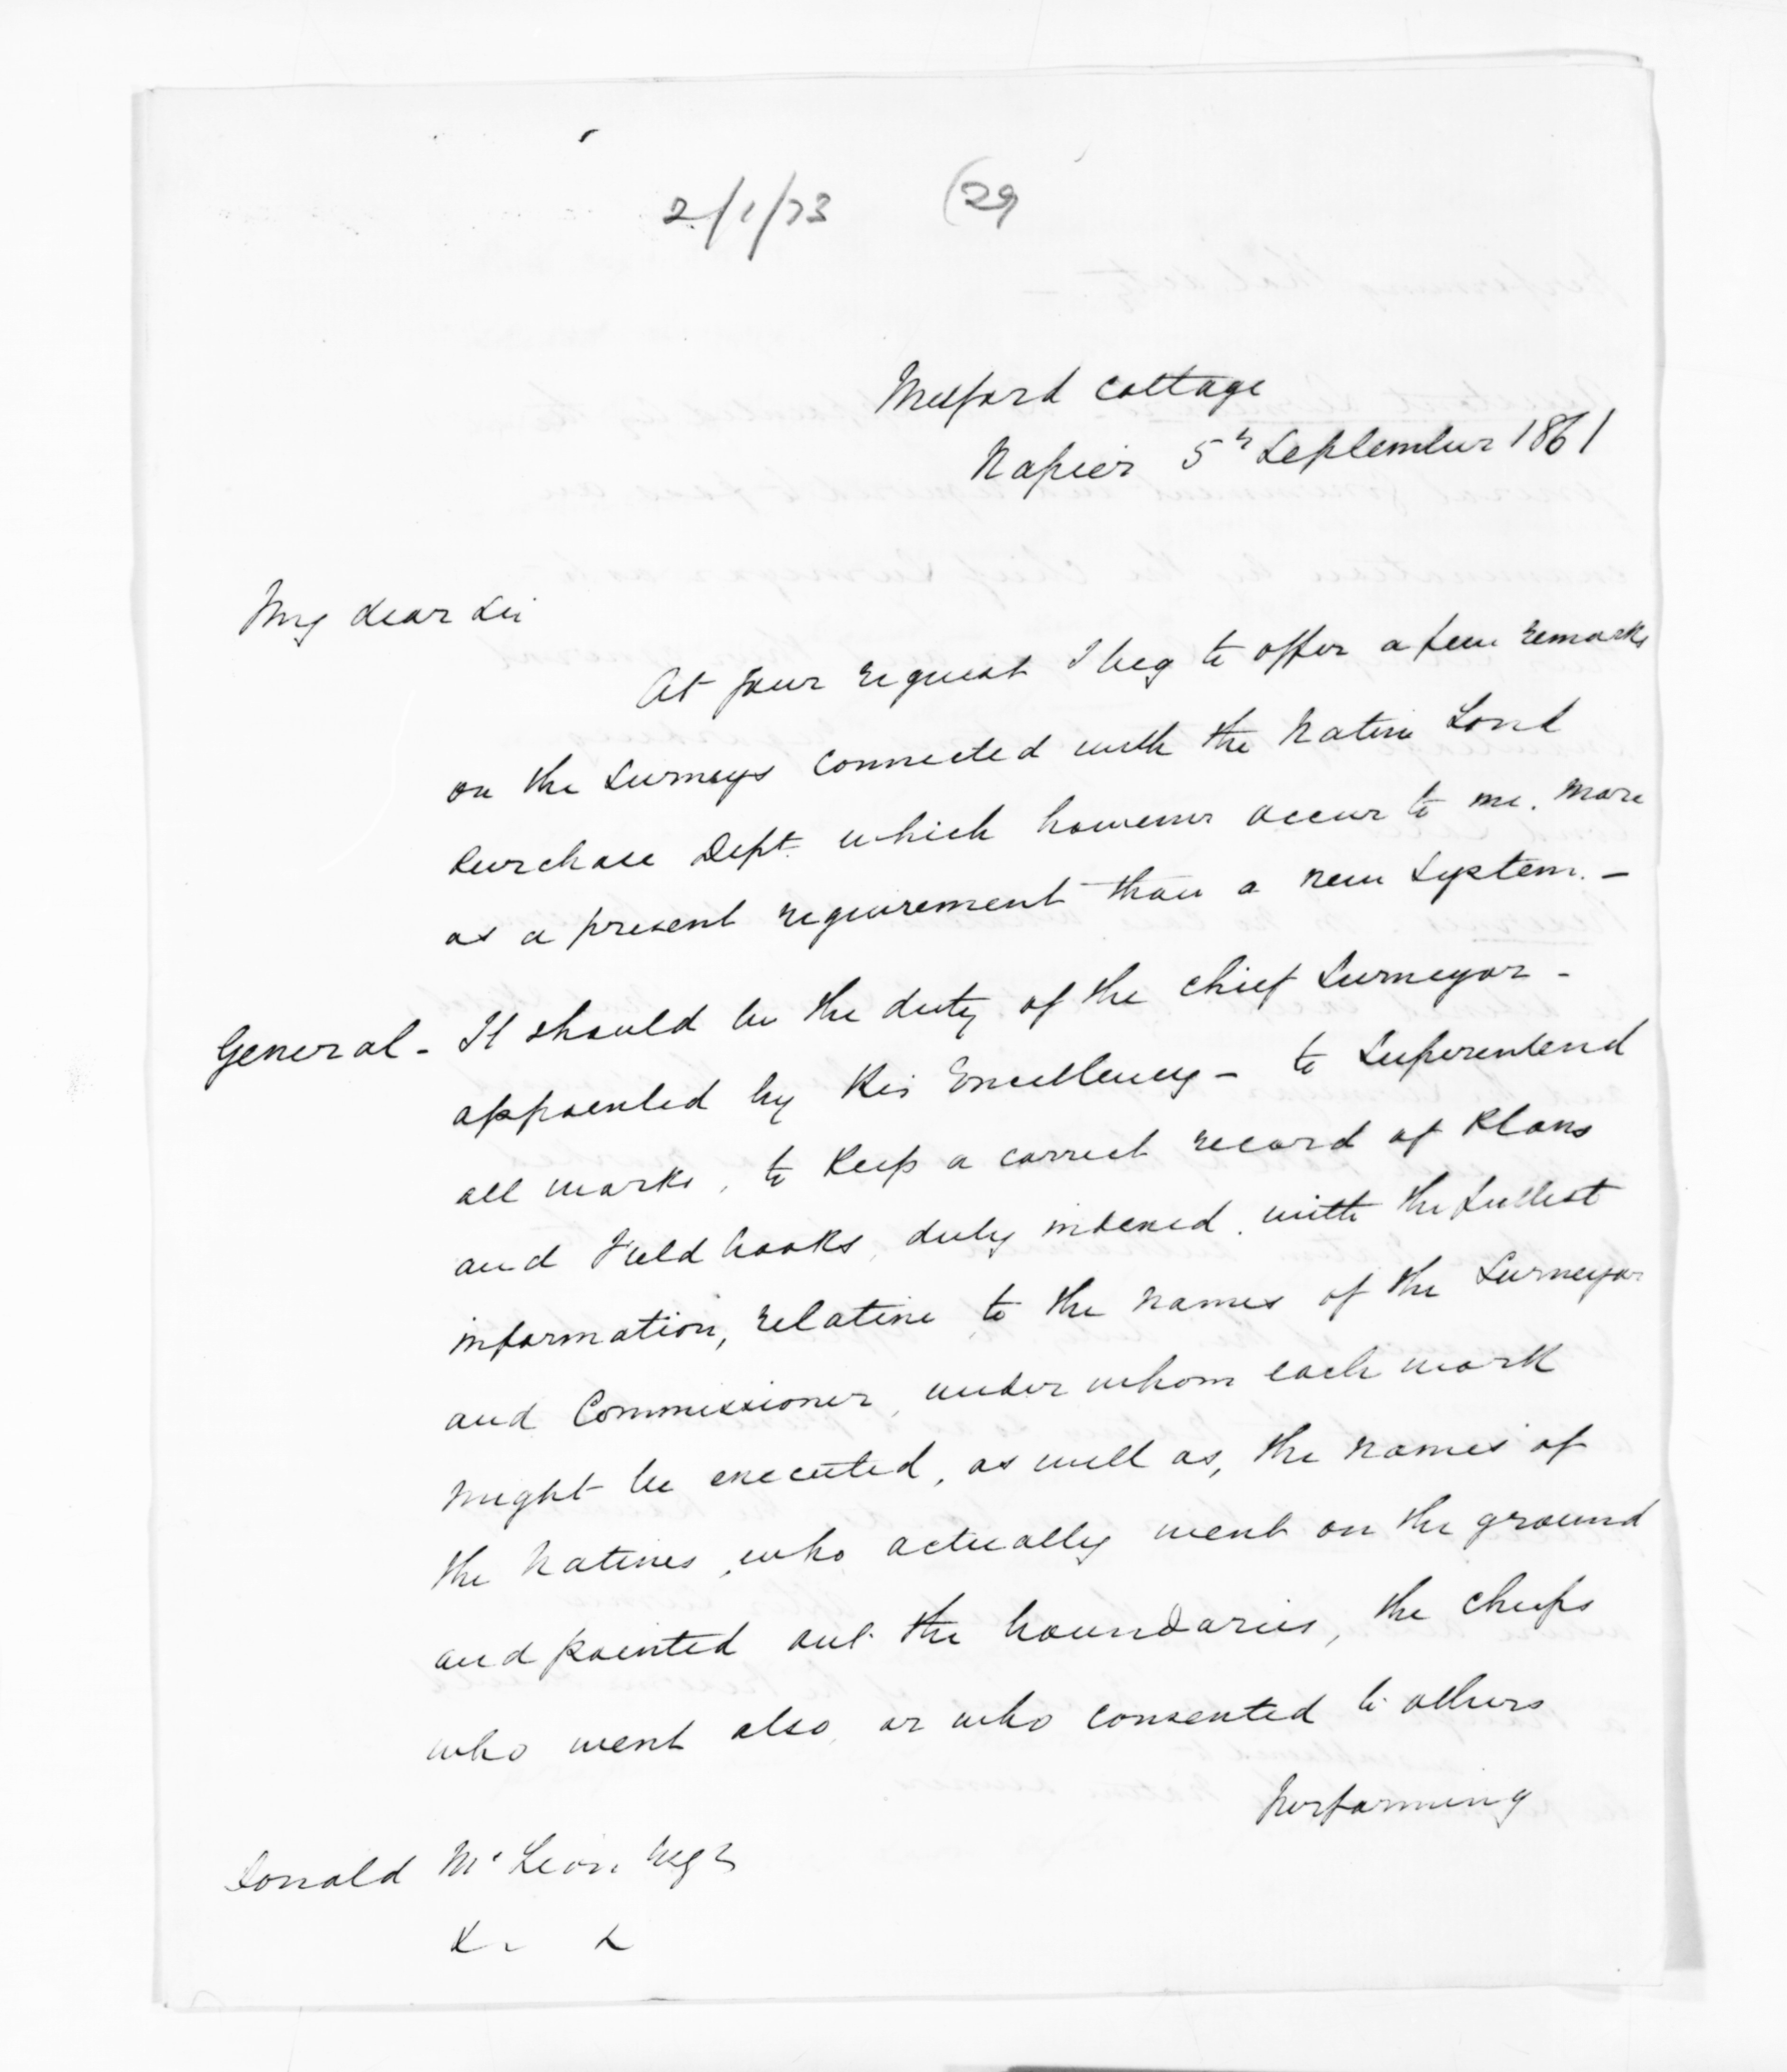 2/1/73 (29
Melford Cottage
Napier 5th September 1861
My dear Sir
At your request I beg to offer a few remarks
on the Surveys connected with the Native Land
Purchase Dept. which however occur to me. more
as a present requirement than a new System. -
General - It should be the duty of the Chief Surveyor -
appointed by His Excellency - to Superintend
all works, to Keep a correct record of Plans
and Field books, duly indexed. with the fullest
information, relative to the names of the Surveyor
and Commissioner, under whom each work
might be executed, as well as, the names of
the Natives, who actually went on the ground
and pointed out the boundaries, the chiefs
who went also, or who consented to others
performing
Donald McLean Esqr
&c &